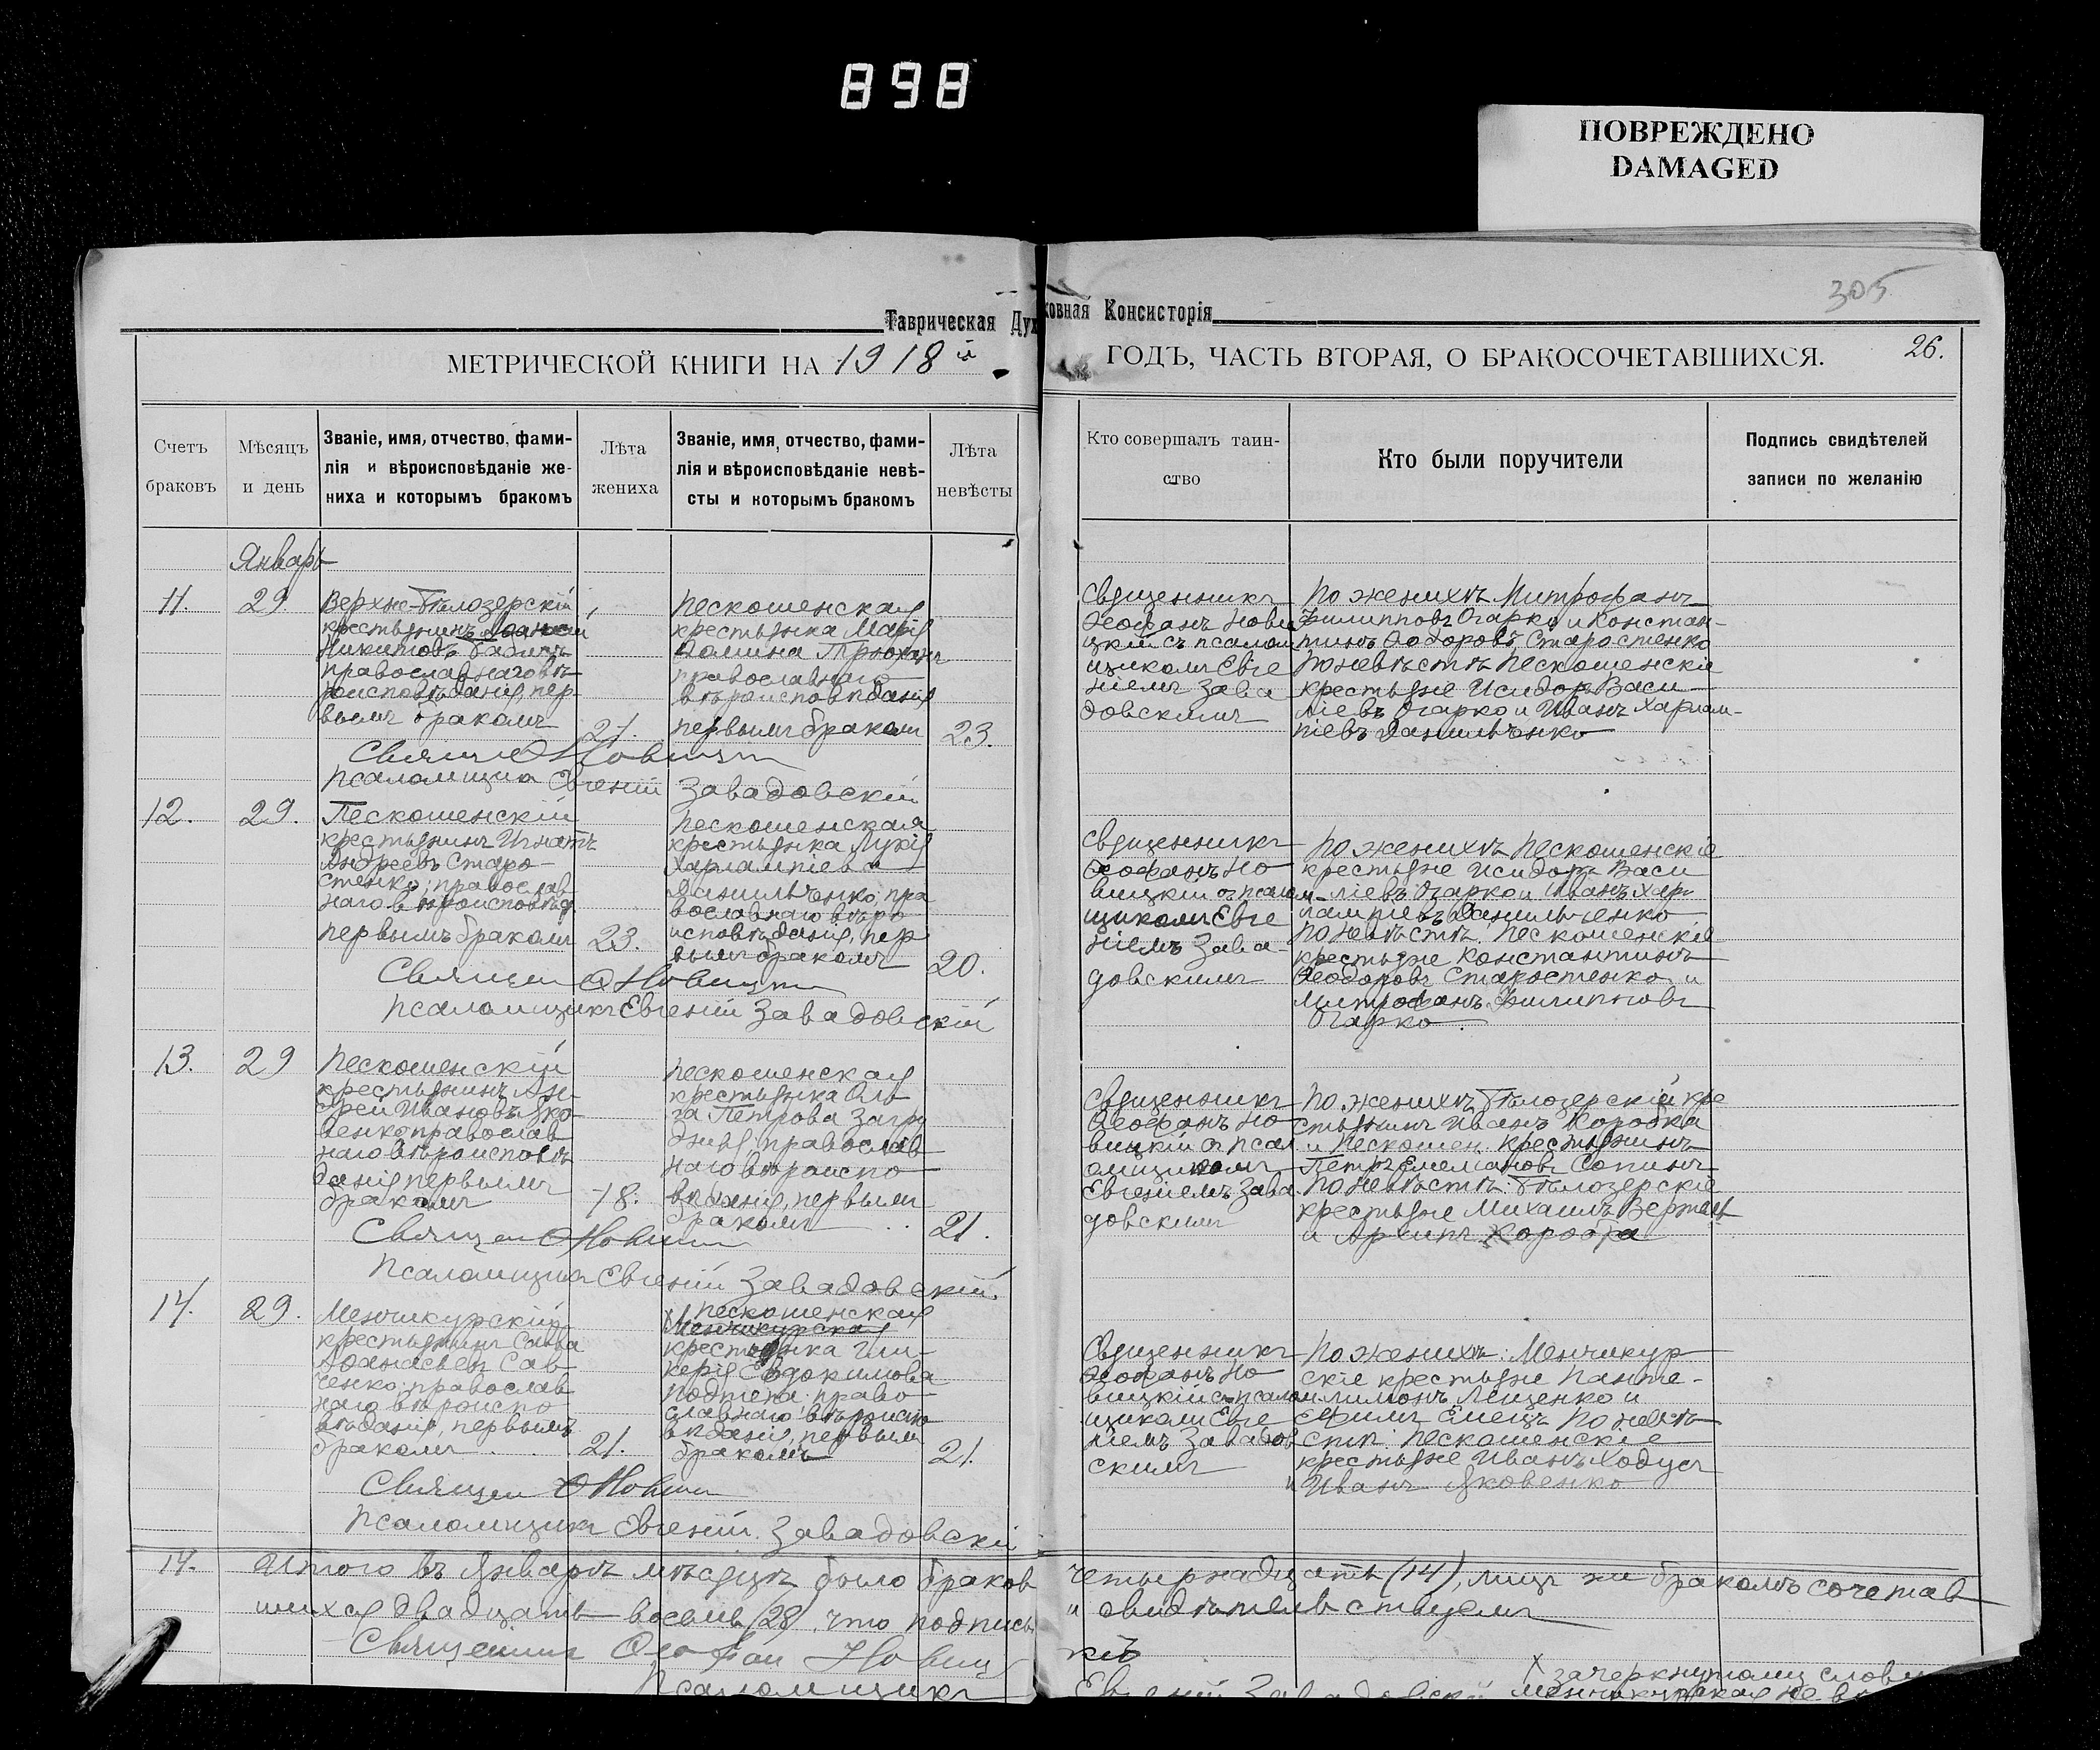 898
ПОВРЕЖДЕНО
DAMAGED
305
Таврическая Духовная Консисторія
МЕТРИЧЕСКОЙ КНИГИ НА 1918 й
ГОДЪ, ЧАСТЬ ВТОРАЯ, О БРАКОСОЧЕТАВШИХСЯ.
26.
Счетъ
браковъ
Мѣсяцъ
и день
Званіе, имя, отчество, фами-
лія и вѣроисповѣданіе же-
ниха и которымъ бракомъ
Лѣта
жениха
Званіе, имя, отчество, фами-
лія и вѣроисповѣданіе невѣ-
сты и которымъ бракомъ
Лѣта
невѣсты
Кто совершалъ таин-
ство
Кто были поручители
Подпись свидѣтелей
записи по желанію
Январь
11.
29.
Верхне-Бѣлозерскій
крестьянинъ
Никитовъ
православнаго вѣ-
роисповѣданія, пер-
вымъ бракомъ
21.
Пескошенская
крестьянка Марія
Фомина
православнаго
вѣроисповѣданія
первымъ бракомъ
23.
Священникъ
Ѳеофанъ Нови
цкій съ псалом
щикомъ Евге
ніемъ Зава
довскимъ
По женихѣ Митрофанъ
Филипповъ Огарко и Констан-
тинъ Ѳеодоровъ Старостенко
По невѣстѣ Пескошенскіе
крестьяне Исидоръ Васи-
ліевъ Огарко и Иванъ Харлам-
піевъ Данильченко
Священ Ѳ Новицкій
Псаломщикъ Евгеній Завадовскій
12.
29.
Пескошенскій
крестьянинъ Игнатъ
Андреевъ Старо-
стенко; православ-
наго вѣроисповѣд.
первымъ бракомъ
23.
Пескошенская
крестьянка Лукія
Харлампіева
Данильченко; пра
вославнаго вѣро
исповѣданія, пер
вымъ бракомъ
20.
Священникъ
Ѳеофанъ Но
вицкій съ псалом-
щикомъ Евге
ніемъ Зава-
довскимъ
По женихѣ Пескошенскіе
крестьяне Исидоръ Васи
ліевъ Огарко и Иванъ Хар-
лампіевъ Данильченко
По невѣстѣ: Пескошенскіе
крестьяне Константинъ
Ѳеодоровъ Старостенко и
Митрофанъ Филипповъ
Огарко.
Священ Ѳ Новицкій
Псаломщикъ Евгеній Завадовскій
13.
29
Пескошенскій
крестьянинъ Ан-
дрей Ивановъ Яко-
венко православ
наго вѣроисповѣ
данія первымъ
бракомъ
18.
Пескошенская
крестьянка Оль
га Петрова
православ
наго вѣроиспо
вѣданія, первымъ
бракомъ
21.
Священникъ
Ѳеофанъ Но
вицкій съ псал
омщикомъ
Евгеніемъ Зава
довскимъ
По женихѣ Бѣлозерскій кре
стьянинъ Иванъ Коробка
и Пескошен. крестьянинъ
Петръ Емеліановъ Сапинъ
По невѣстѣ: Бѣлозерскіе
крестьяне Михаилъ
и Архипъ Коробка
Священ Ѳ Новицкій
Псаломщикъ Евгеній Завадовскій.
14.
29.
Менчикурскій
крестьянинъ Савва
Аѳанасьевъ Сав-
ченко; православ
наго вѣроиспо
вѣданія, первымъ
бракомъ
21.
Пескошенская
Менчикурская
крестьянка Гли-
керія Евдокимова
право
славнаго вѣроиспо
вѣданія, первымъ
бракомъ
21.
Священникъ
Ѳеофанъ Но
вицкій съ псалом
щикомъ Евге
ніемъ Завадов
скимъ
По женихѣ: Менчикур
скіе крестьяне Панте-
лимонъ Лещенко и
Ефимъ Емецъ По невѣ-
стѣ: Пескошенскіе
крестьяне Иванъ Ходусъ
и Иванъ Яковенко
Священ Ѳ Новицкій
Псаломщикъ Евгеній Завадовскій
14.
Итого въ Январѣ мѣсяцѣ было браков четырнадцать (14), лицъ же бракомъ сочетав
шихся двадцать восемь (28) что подписью и свидѣтельствуемъ
Священникъ Ѳеофан Новицкій
Псаломщикъ Евгеній Завадовскій
X зачеркнутому слову
Менчикурская не